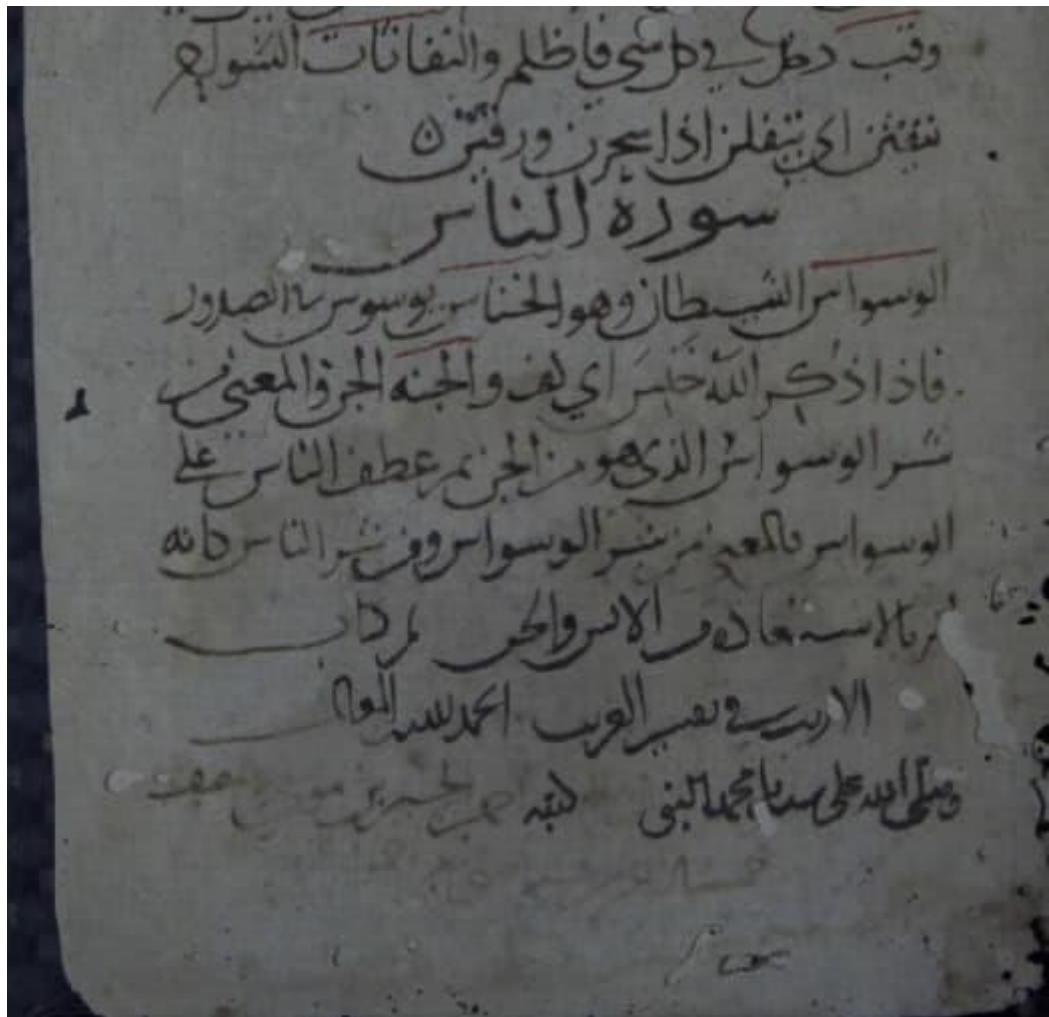 وقب دخل في كل شي فاظلم والنفاثات السواحر
ينفثن اي يتفلن اذا سحرن ورقين
سورة الناس
الوسواس الشيطان وهو الخناس يوسوس في الصدور
فاذا ذكر الله خنس اي كف والجنه الجن والمعنى من
شر الوسواس الذي هو من الجن ثم عطف الناس على
الوسواس فالمعنى من شر الوسواس ومن شر الناس كانه
امر بالاستعاذه من الانس والجن تم كتاب
الاريب في تفسير الغريب الحمد لله
وصلى الله على سيدنا محمد النبي كتبه